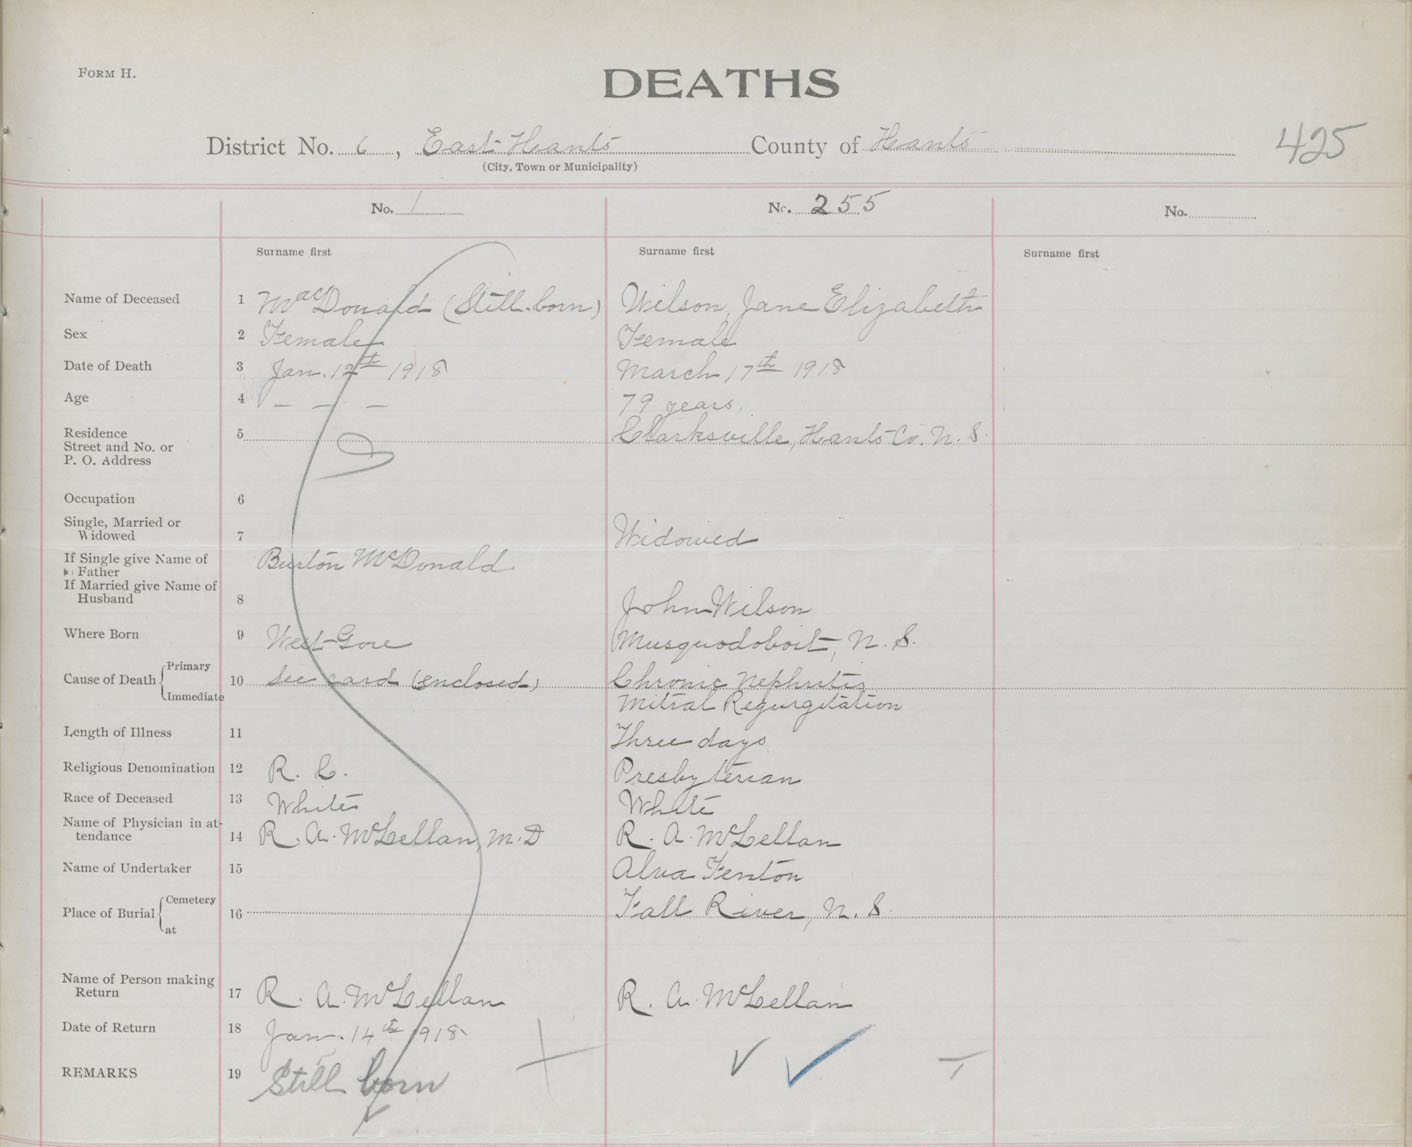 FORM H.
DEATHS
425
District No. 6, East Hants County of Hants
(City, Town or Municipality)
No. 1 No. 255 No.
Surname first Surname first Surname first
Name of Deceased 1 MacDonald (Still-born) Wilson, Jane Elizabeth
Sex 2 Female Female
Date of Death 3 Jan. 12th 1918 March 17th 1918
Age 4 — — — 79 years.
Residence 5 Clarksville, Hants Co. N. S.
Street and No. or
P. O. Address
Occupation 6
Single, Married or
Widowed 7 Widowed
If Single give Name of
Father Burton McDonald
If Married give Name of
Husband 8 John Wilson
Where Born 9 West Gore Musquodoboit, N. S.
Cause of Death { Primary 10 See card (enclosed) Chronic Nephritis
Immediate Mitral Regurgitation
Length of Illness 11 Three days
Religious Denomination 12 R. C. Presbyterian
Race of Deceased 13 White White
Name of Physician in at-
tendance 14 R. A. McLellan, M.D R. A. McLellan
Name of Undertaker 15 Alva Fenton
Place of Burial { Cemetery 16 Fall River, N. S.
at
Name of Person making
Return 17 R. A. McLellan R. A. McLellan
Date of Return 18 Jan. 14th 1918
REMARKS 19 Still born